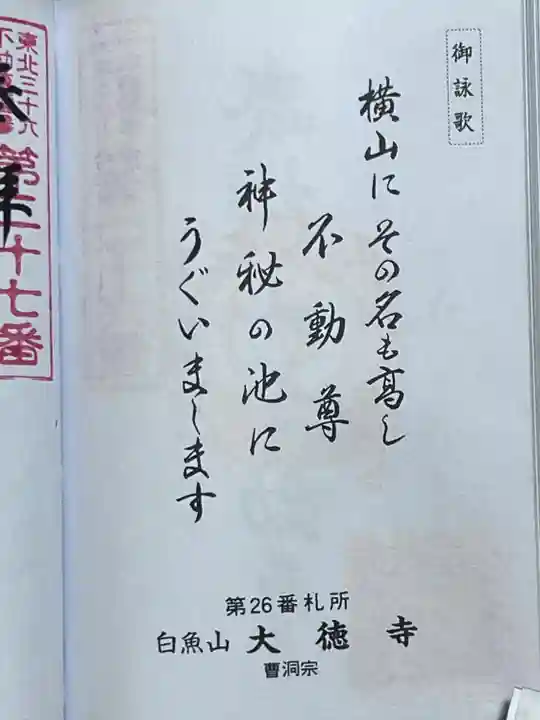 御詠歌
横山に その名も高し
不動尊
神秘の池に
うぐいまします
第26番札所
白魚山 大徳寺
曹洞宗
東北三十六
第二十七番
奉拝